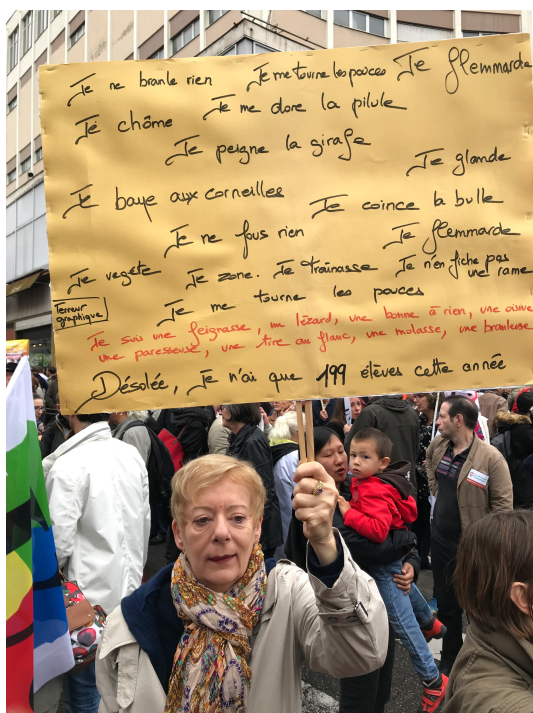 Je ne branle rien Je me tourne les pouces Je flemmarde
Je chôme Je me dore la pilule
Je peigne la girafe
Je glande
Je baye aux corneilles Je coince la bulle
Je ne fous rien Je flemmarde
Je végète Je zone. Je traînasse Je n'en fiche pas
une rame
Terreur
graphique
Je me tourne les pouces
Je suis une feignasse, un lézard, une bonne à rien, une oisive
une paresseuse, une tire au flanc, une molasse, une branleuse
Désolée, je n'ai que 199 élèves cette année